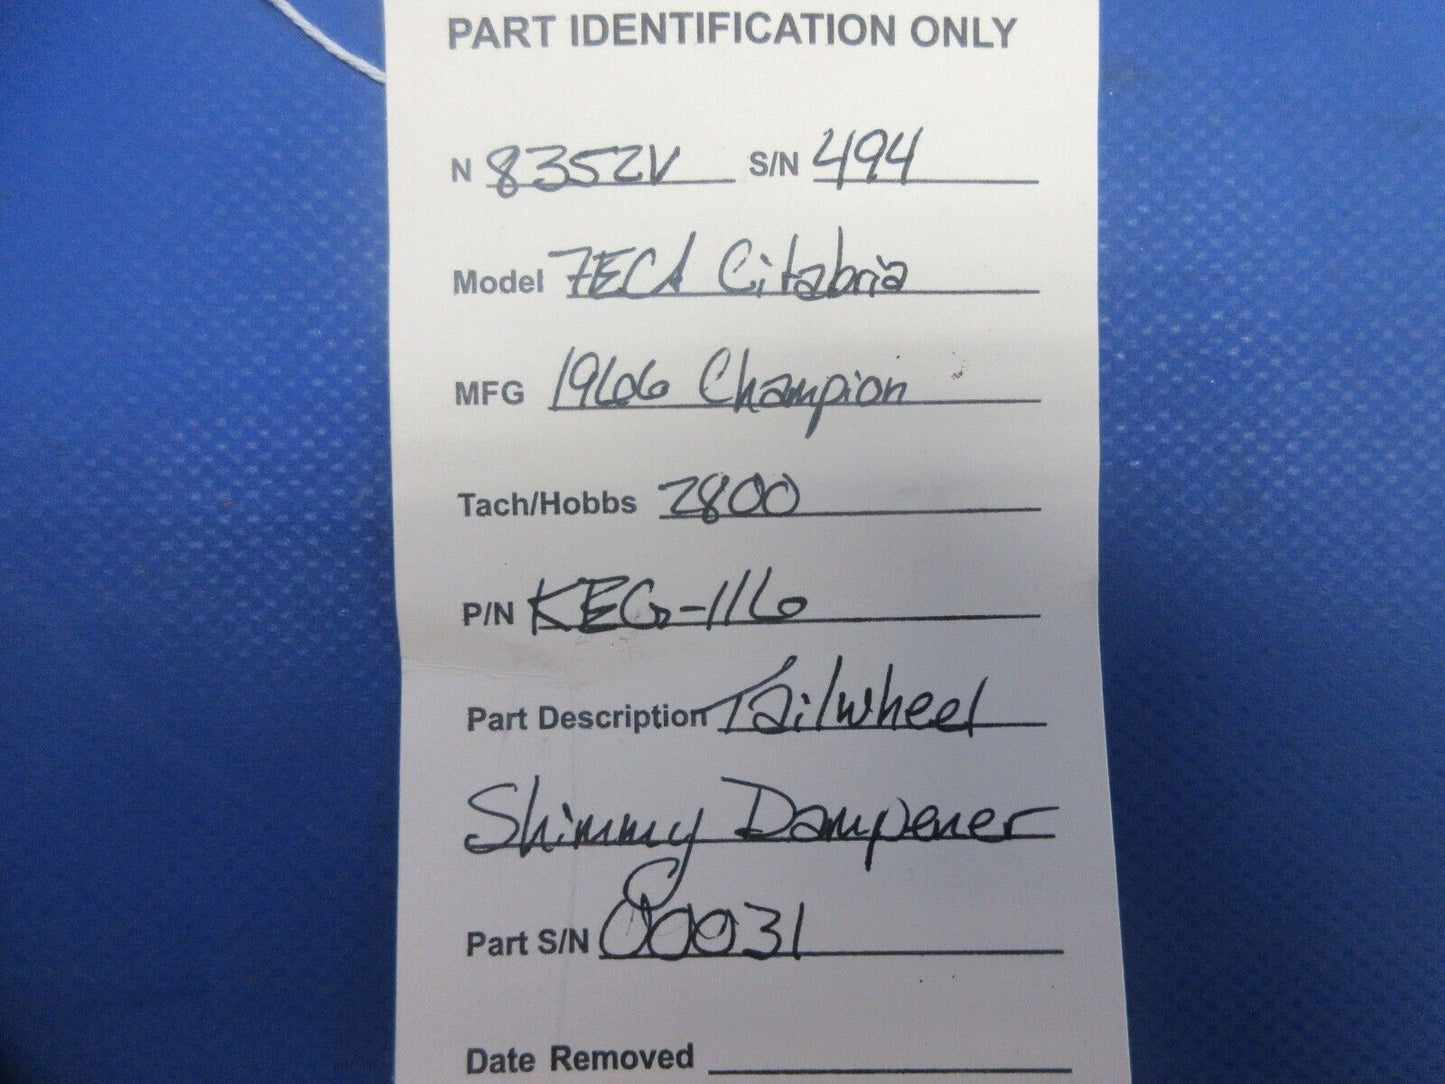 PART IDENTIFICATION ONLY
N 8352V S/N 494
Model 7ECA Citabria
MFG 1966 Champion
Tach/Hobbs 2800
P/N KEG-116
Part Description Tailwheel
Shimmy Dampener
Part S/N 00031
Date Removed